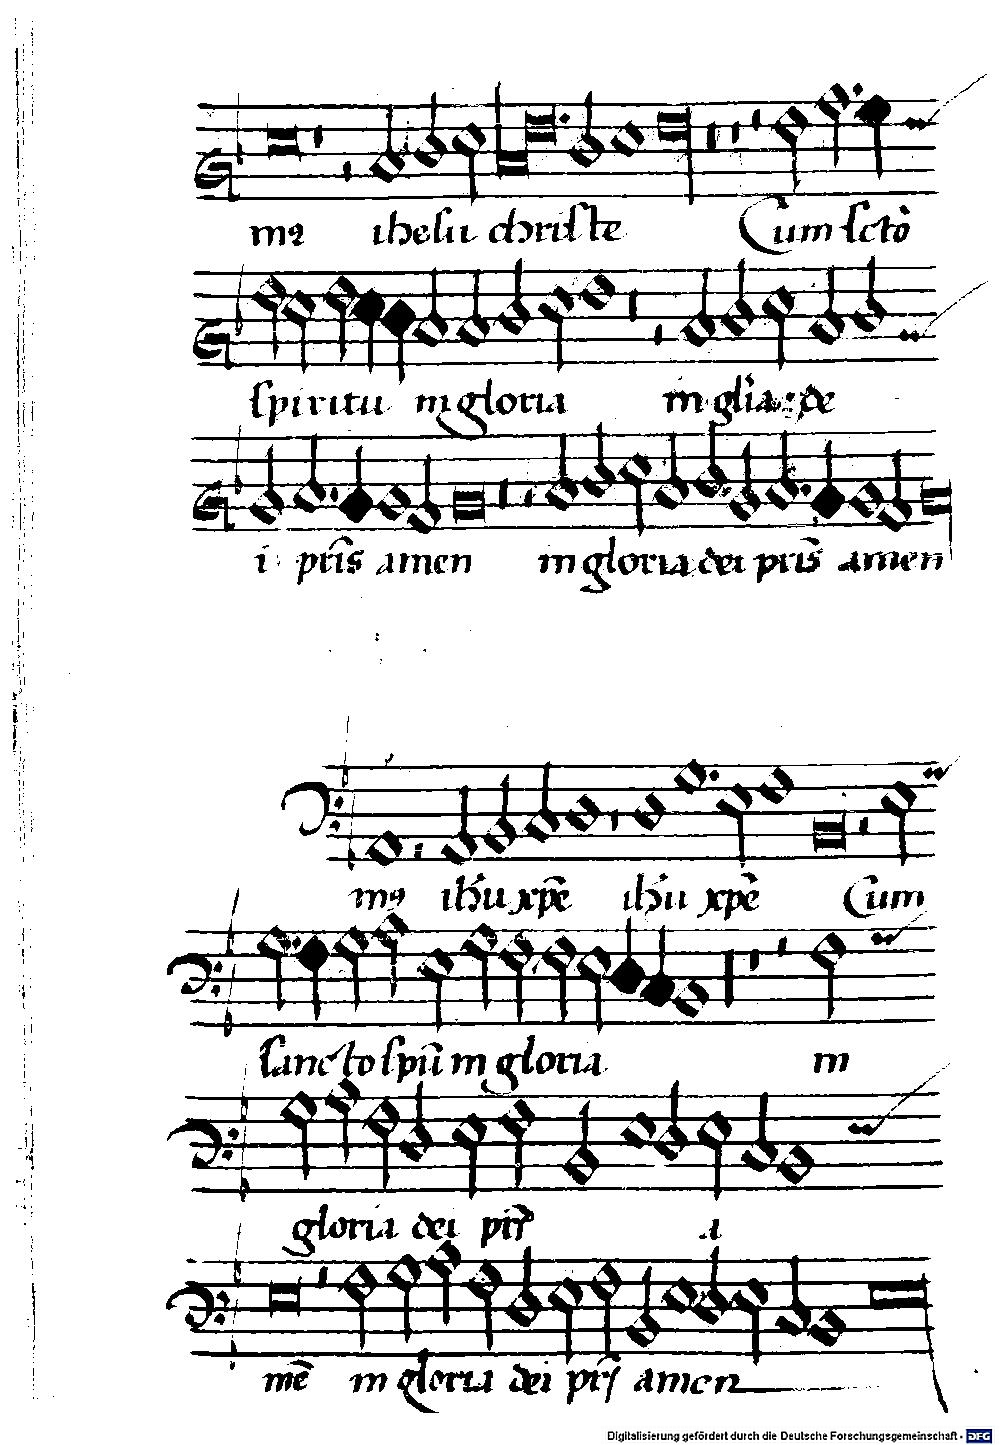 ma ihesu christe Cum scto
spiritu in gloria in glia de
i pris amen in gloria dei pris amen
ma ihu xpe ihu xpe Cum
sancto spu in gloria in
gloria dei pris a
mē in gloria dei pris amen
Digitalisierung gefördert durch die Deutsche Forschungsgemeinschaft - DFG